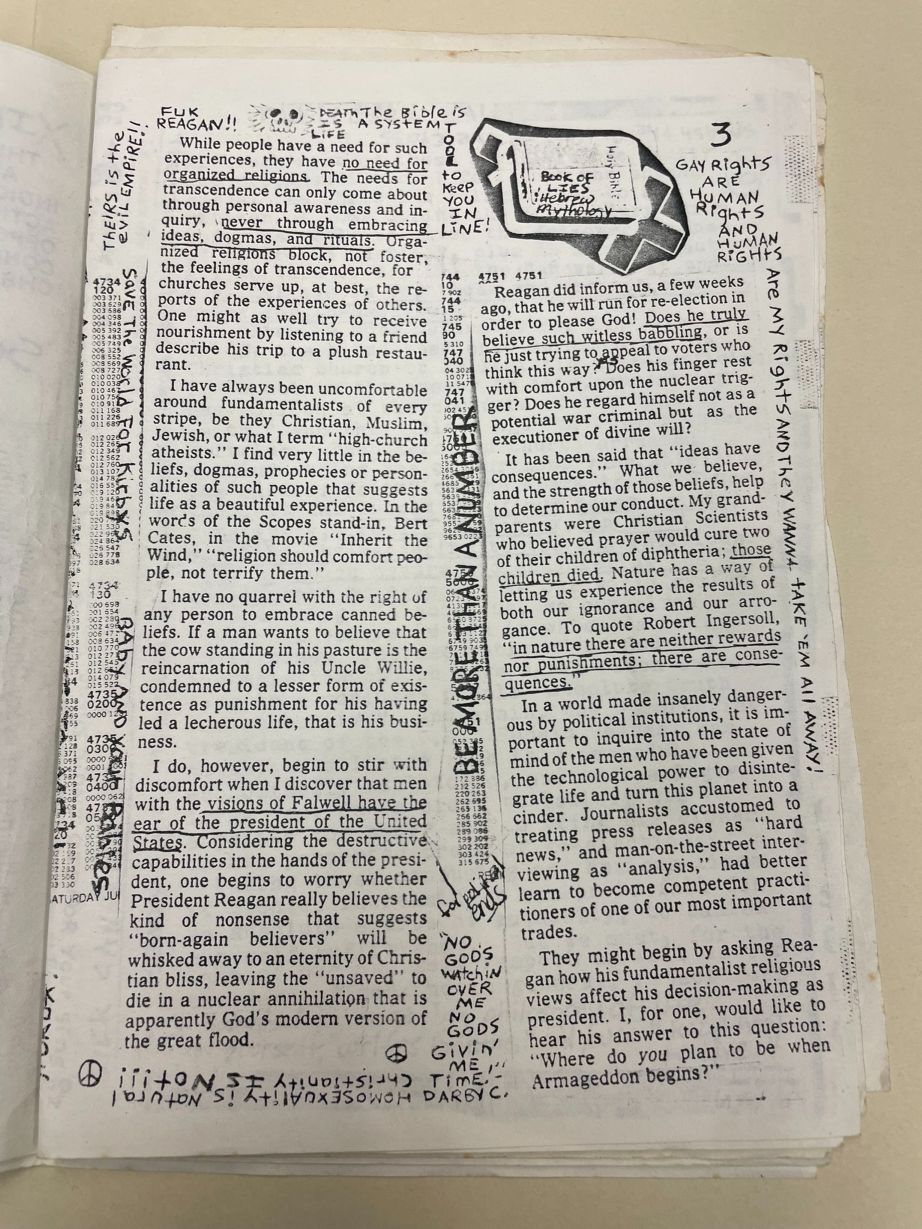 FUK
REAGAN!!
DEATH
IS
LIFE
The Bible is
A SYSTEM
TOOL
to
KEEP
YOU
IN
LINE!
BOOK OF
LIES
Hebrew
Mythology
Holy Bible
3
GAY RIGHTS
ARE
HUMAN
RIGHTS
AND
HUMAN
RIGHTS
ARE MY RIGHTS AND THEY WANNA TAKE 'EM All AWAY!
THEIRS is the
EVIL EMPIRE!!
SAVE The WORLD FOR Kittys
BABY AND YOUR Babies
While people have a need for such
experiences, they have no need for
organized religions. The needs for
transcendence can only come about
through personal awareness and in-
quiry, never through embracing
ideas, dogmas, and rituals. Orga-
nized religions block, not foster,
the feelings of transcendence, for
churches serve up, at best, the re-
ports of the experiences of others.
One might as well try to receive
nourishment by listening to a friend
describe his trip to a plush restau-
rant.
I have always been uncomfortable
around fundamentalists of every
stripe, be they Christian, Muslim,
Jewish, or what I term "high-church
atheists." I find very little in the be-
liefs, dogmas, prophecies or person-
alities of such people that suggests
life as a beautiful experience. In the
words of the Scopes stand-in, Bert
Cates, in the movie "Inherit the
Wind," "religion should comfort peo-
ple, not terrify them."
I have no quarrel with the right of
any person to embrace canned be-
liefs. If a man wants to believe that
the cow standing in his pasture is the
reincarnation of his Uncle Willie,
condemned to a lesser form of exis-
tence as punishment for his having
led a lecherous life, that is his busi-
ness.
I do, however, begin to stir with
discomfort when I discover that men
with the visions of Falwell have the
ear of the president of the United
States. Considering the destructive
capabilities in the hands of the presi-
dent, one begins to worry whether
President Reagan really believes the
kind of nonsense that suggests
"born-again believers" will be
whisked away to an eternity of Chris-
tian bliss, leaving the "unsaved" to
die in a nuclear annihilation that is
apparently God's modern version of
the great flood.
HOMOSEXUALITY is Natural
Christianity IS NOT!!!
BE MORE THAN A NUMBER
"NO
GODS
WATCHIN
OVER
ME
NO
GODS
GIVIN'
ME
TIME."
DARBY C.
Reagan did inform us, a few weeks
ago, that he will run for re-election in
order to please God! Does he truly
believe such witless babbling, or is
he just trying to appeal to voters who
think this way? Does his finger rest
with comfort upon the nuclear trig-
ger? Does he regard himself not as a
potential war criminal but as the
executioner of divine will?
It has been said that "ideas have
consequences." What we believe,
and the strength of those beliefs, help
to determine our conduct. My grand-
parents were Christian Scientists
who believed prayer would cure two
of their children of diphtheria; those
children died. Nature has a way of
letting us experience the results of
both our ignorance and our arro-
gance. To quote Robert Ingersoll,
"in nature there are neither rewards
nor punishments; there are conse-
quences."
In a world made insanely danger-
ous by political institutions, it is im-
portant to inquire into the state of
mind of the men who have been given
the technological power to disinte-
grate life and turn this planet into a
cinder. Journalists accustomed to
treating press releases as "hard
news," and man-on-the-street inter-
viewing as "analysis," had better
learn to become competent practi-
tioners of one of our most important
trades.
They might begin by asking Rea-
gan how his fundamentalist religious
views affect his decision-making as
president. I, for one, would like to
hear his answer to this question:
"Where do you plan to be when
Armageddon begins?"